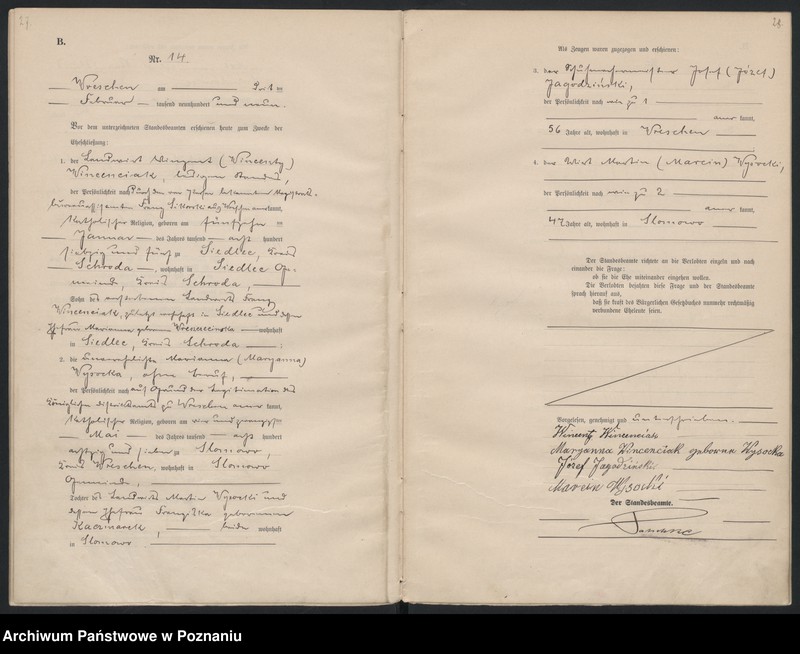 27.
28.
B.
Nr. 14
Wreschen am
Februar tausend neunhundert und neun.
Vor dem unterzeichneten Standesbeamten erschienen heute zum Zweck der
Eheschließung:
1. der Landwirt Vinzent (Wincenty)
Wincenciak, ledigen Standes,
der Persönlichkeit nach
kannt,
katholischer Religion, geboren am fünfzehn ten
Januar des Jahres tausend acht hundert
siebzig und fünf zu Siedlec, Kreis
Schroda, wohnhaft in Siedlec Ge-
meinde, Kreis Schroda,
Sohn des verstorbenen Landwirts Franz
Wincenciak, zuletzt wohnhaft in Siedlec und dessen
Ehefrau Marianna geborenen wohnhaft
in Siedlec, Kreis Schroda ;
2. die unverehelichte Marianna (Maryanna)
Wysocka, ohne Beruf,
der Persönlichkeit nach auf Grund der Legitimation des
Königlichen Distriktsamts zu Wreschen aner kannt,
katholischer Religion, geboren am vier und zwanzigsten
Mai des Jahres tausend acht hundert
achtzig und sieben zu Slomowo,
Kreis Wreschen, wohnhaft in Slomowo
Gemeinde,
Tochter des Landwirts Martin Wysocki und
dessen Ehefrau Franziska geborenen
Kaczmarek, beide wohnhaft
in Slomowo
Als Zeugen waren zugezogen und erschienen:
3. der Schuhmachermeister Josef (Józef)
Jagodziński,
der Persönlichkeit nach wie zu 1
aner kannt,
56 Jahre alt, wohnhaft in Wreschen
4. der Wirt Martin (Marcin) Wysocki,
der Persönlichkeit nach wie zu 2
aner kannt,
47 Jahre alt, wohnhaft in Slomowo
Der Standesbeamte richtete an die Verlobten einzeln und nach
einander die Frage:
ob sie die Ehe miteinander eingehen wollen.
Die Verlobten bejahten diese Frage und der Standesbeamte
sprach hierauf aus,
daß sie kraft des Bürgerlichen Gesetzbuches nunmehr rechtmäßig
verbundene Eheleute seien.
Vorgelesen, genehmigt und unterschrieben.
Wincenty Wincenciak
Maryanna Wincenciak geborene Wysocka
Józef Jagodziński
Marcin Wysocki
Der Standesbeamte.
Archiwum Państwowe w Poznaniu